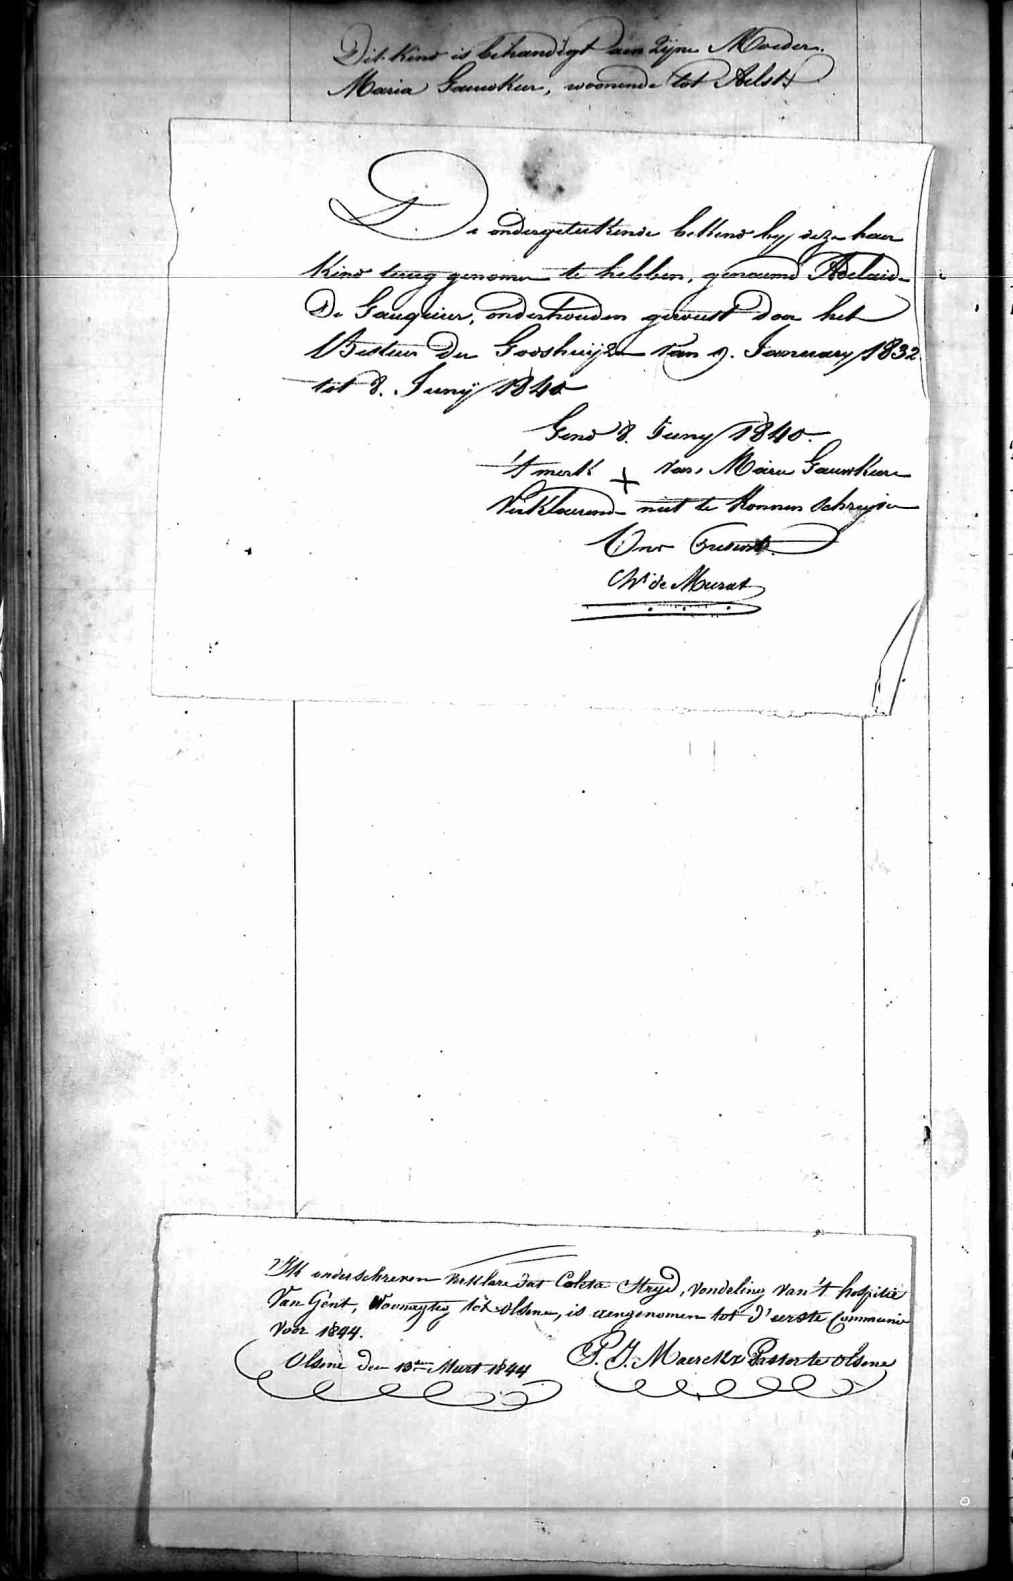 Dit Kind is behandigt aen zyne Moeder.
Maria Gauwkeer, woonende tot Aelst
De ondergeteekende bekend by deze haer
Kind terug genomen te hebben, genaemd Adelaide
De Gauquier, onderhouden geweest door het
Bestuer Der Godshuyzen van 9. January 1832
tot 8. Juny 1840
Gend 8. Juny 1840.
't merk x van Marie Gauwkeer
Verklaerende niet te konnen schryven
Ons Present.
Chs de Murat
Ik onderschreven verklare dat Coleta Stryd, vondeling van 't hospitie
Van Gent, Woonagtig tot olsene, is aengenomen tot d'eerste Communie
Voor 1844.
Olsene den 13en Meert 1844 P. J. Maerckx Pastor te olsene